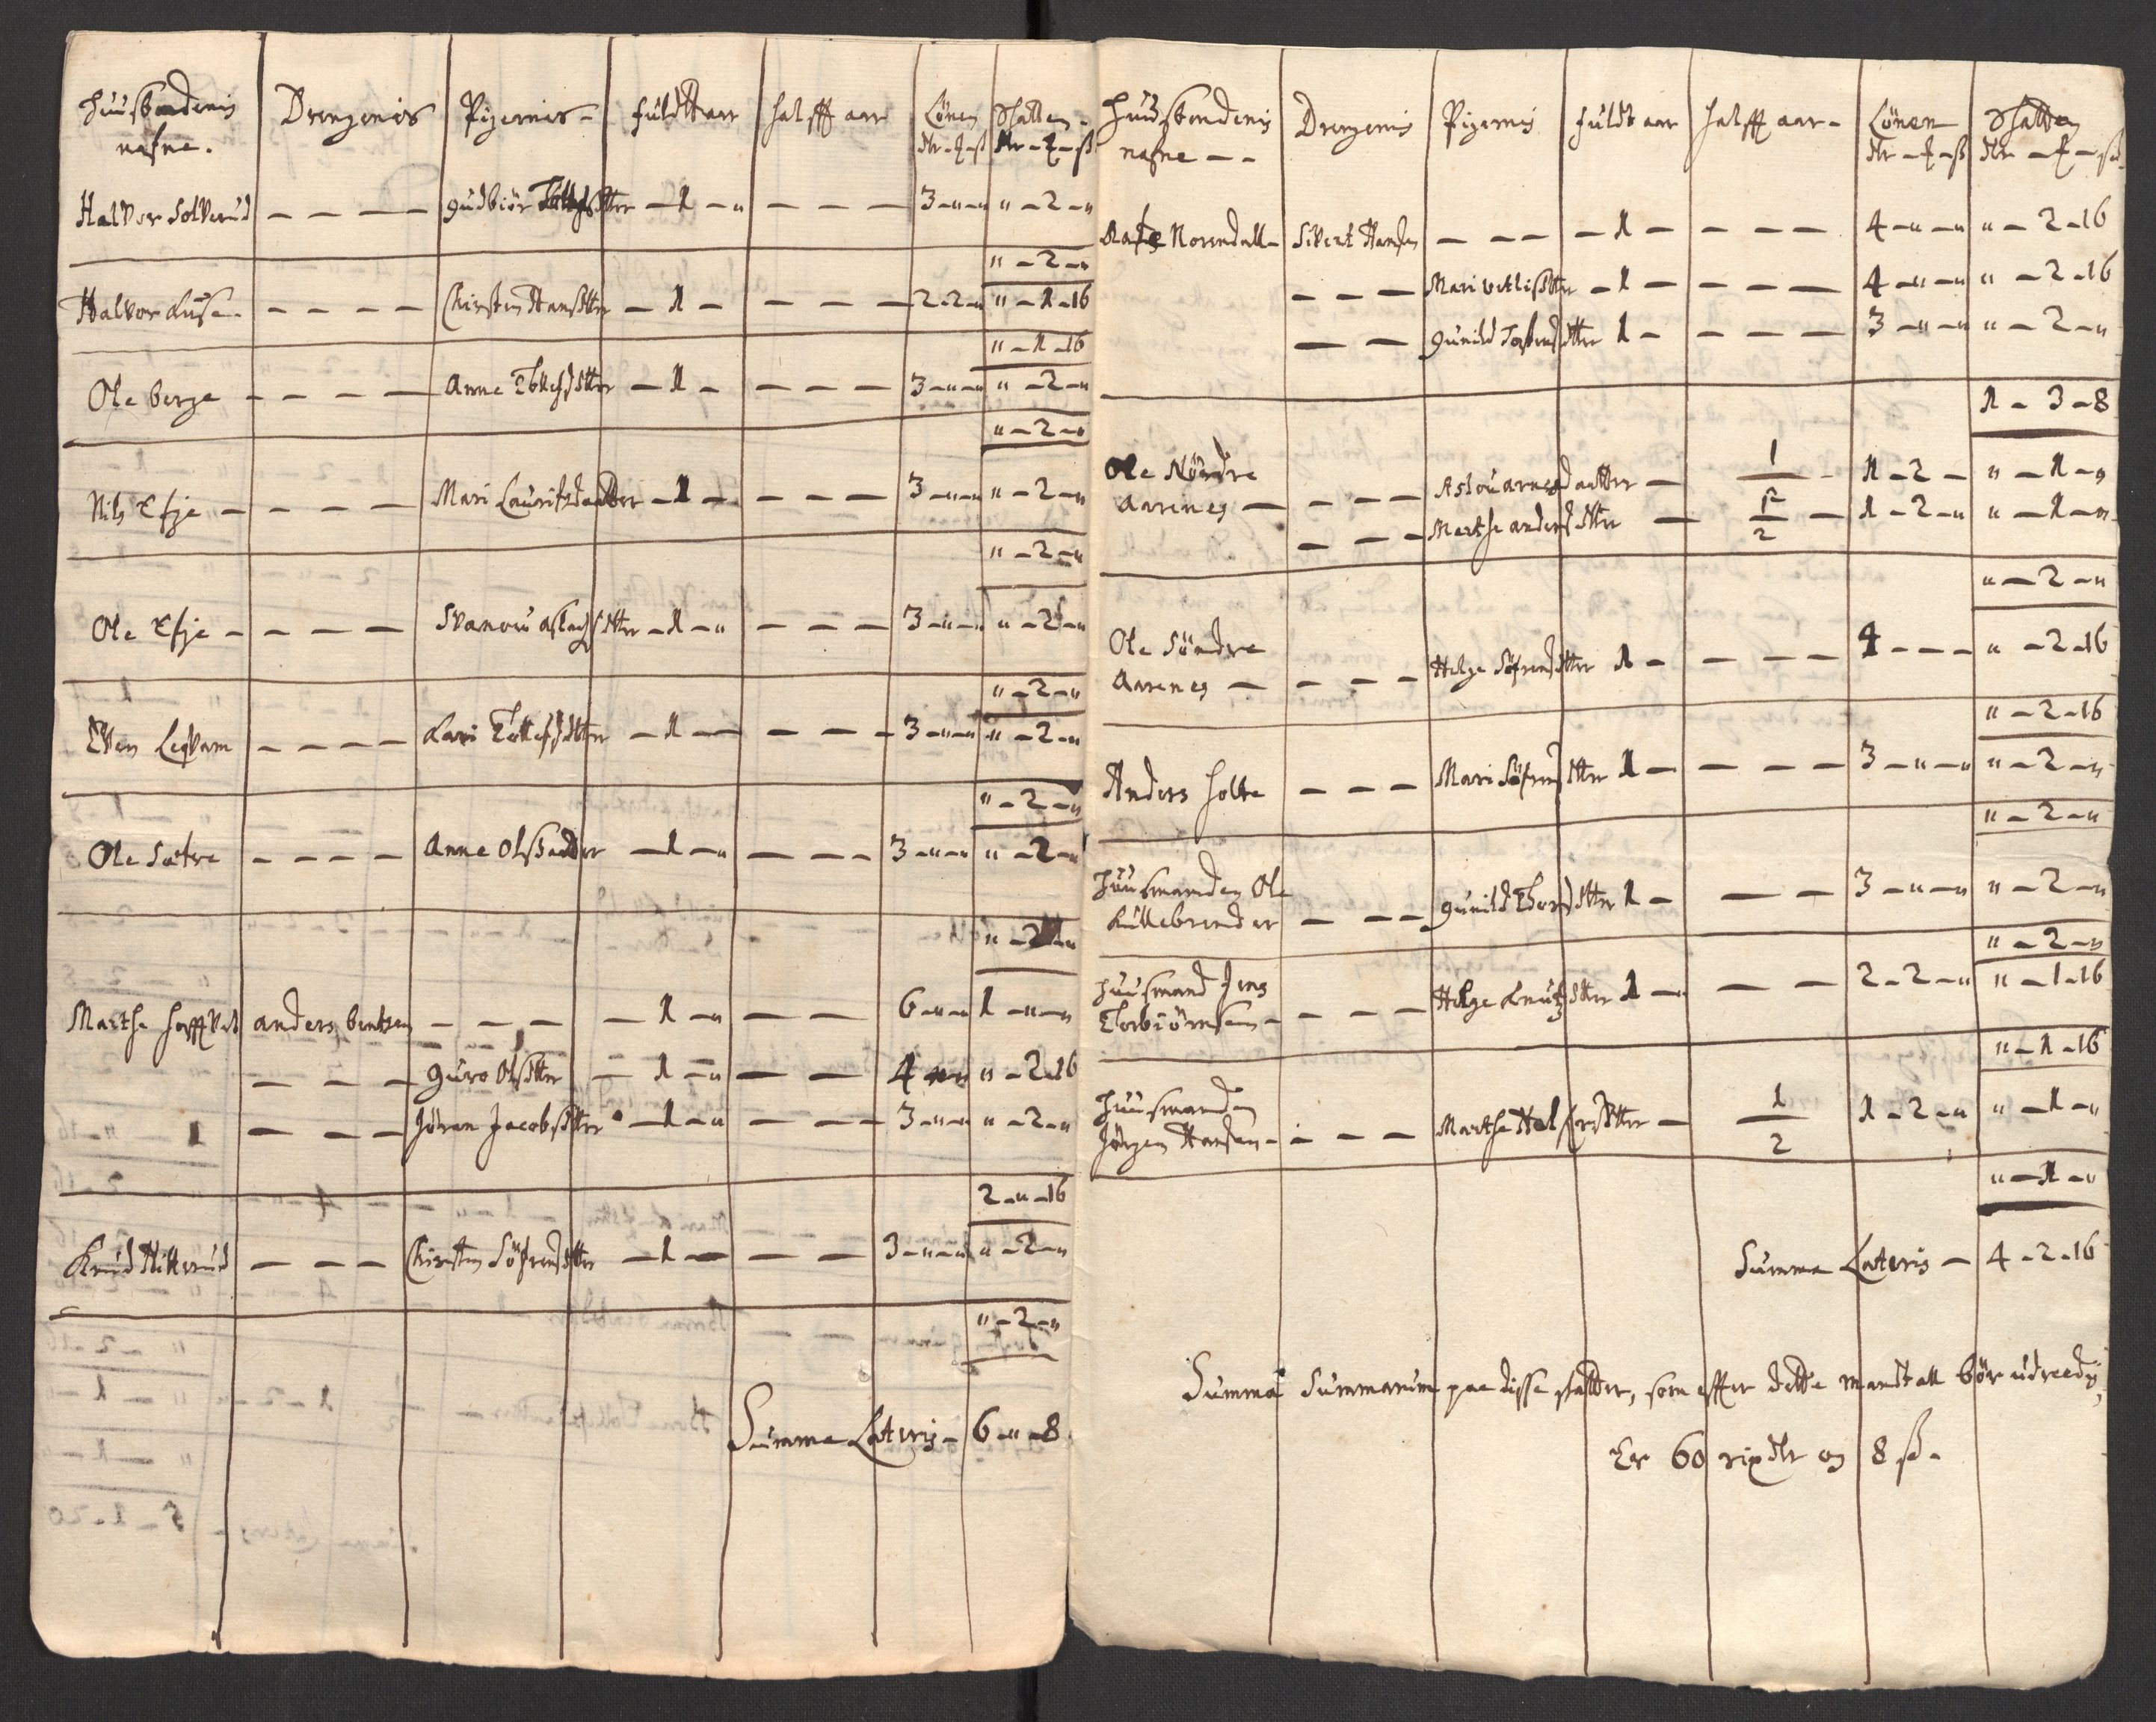 Huusbondenis Drengenis Pigernis- fuldt aar halff aar Lönen Skatten-
nafne. dlr-ƺ-ß dlr-ƺ-ß
Halvor Solverud - - - - gudbiör - 1 - „ - - - 3-„-„ „-2-„
„-2-„
Halvor - - - - Chirsten Hansdtter - 1 - - - - 2-2-„ „-1-16
„-1-16
Ole berge - - - - Anne Tollefsdtter - 1 - - - - 3-„-„ „-2-„
„-2-„
Nils Efje - - - - Mari Lauritzdaatter - 1 - - - - 3-„-„ „-2-„
„-2-„
Ole Efje - - - - Svanou aslachsdtter - 1 - „ - - - 3-„-„ „-2-„
„-2-„
Even Leqvam - - - - Kari Tollefsdtter - 1 - - - - 3-„-„ „-2-„
„-2-„
Ole Sætre - - - - Anne Olsdaatter - 1 - „ - - - 3-„-„ „-2-„
„-2-„
Marthe hofftvet anders bentsen - - - - 1 - „ - - 6-„-„ 1-„-„
- - - guro Olsdtter - 1 - „ - - 4-„-„ „-2-16
1 - - - Jöran Jacobsdtter - 1 - „ - - 3-„-„ „-2-„
2-„-16
Knud Hitterud - - - Chirsten Söfrensdtter - 1 - - - 3-„-„ „-2-„
„-2-„
Summa Lateris - 6-„-8
Huusbondenis Drengenis Pigernis fuldt aar halff aar- Lönen Skatten
nafne - - dlr-ƺ-ß dlr-ƺ-ß
Norendall- Sivert Hansen - - - - 1 - - - - 4-„-„ „-2-16
- - - Mari - 1 - - - - 4-„-„ „-2-16
- - gunild Torbensdtter 1 - - - - 3-„-„ „-2-„
1-3-8
Ole Nördre - - - Aslou arnesdaatter - 1/2 - 1-2- „-1-„
Aarenes - - - - Marthe andersdtter - 1/2 - 1-2-„ „-1-„
„-2-„
Ole Söndre
Aarenes - - - - Helge Söfrensdtter 1 - - - - 4 - - - „-2-16
„-2-16
Anders holte - - - Mari Söfrensdtter 1 - - - - 3-„-„ „-2-„
„-2-„
Huusmanden Ole
Kullebrender - - - gunild Thorsdtter 1 - - - 3-„-„ „-2-„
„-2-„
huusmand Jens
Torbiörnsen - - - - Helge Knutzdtter 1 - „ - - 2-2-„ „-1-16
„-1-16
Huusmanden
Jörgen Hansen - - - - Marthe Halfvorsdtter - 1/2 1-2-„ „-1-„
„-1-„
Summa Lateris - 4-2-16
Summa Summarum paa disse skatter, som effter dette mandtall bör udreedis,
Er 60 rixdlr og 8 ß-